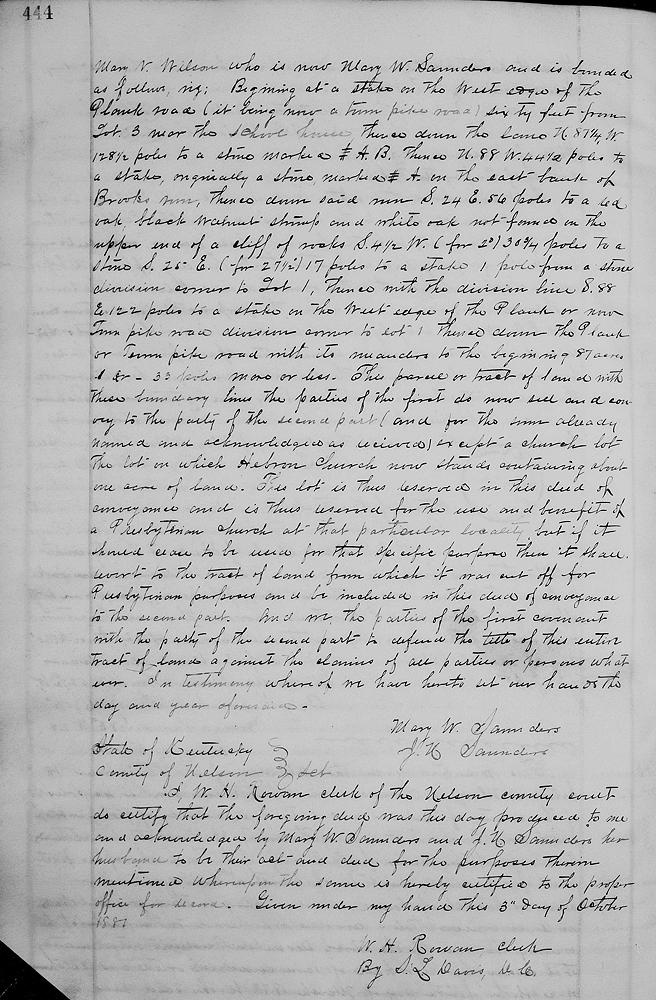 444
Mary V. Wilson who is now Mary W. Saunders and is bounded
as follows, viz; Begining at a stake on the West edge of the
Plank road (it being now a turn pike road) sixty feet from
Lot. 3 near the school house, thence down the same N. 87¼ W
128½ poles to a stone marked # A. B. Thence N. 88 W. 44½ poles to
a stake, originally a stone, marked # A. on the east bank of
Brooks run, thence down said run S. 24 E. 56 poles to a red
oak, black Walnut stump and white oak not found on the
upper end of a cliff of rocks S. 4½ W. (for 2°) 30¾ poles to a
stone S. 25 E. (for 27½) 17 poles to a stake 1 pole from a stone
division corner to Lot 1, thence with the division line S. 88
E 122 poles to a stake on the West edge of the Plank or now
Turn pike road division corner to lot 1 thence down the Plank
or Turn pike road with its meanders to the begining 87 acres
1 Rr - 33 poles more or less. This parcel or tract of land with
these boundary lines the parties of the first do now sell and con
vey to the party of the second part (and for the sum already
named and acknowledged as recieved) except a church lot
the lot on which Hebron Church now stands containing about
one acre of land. This lot is thus reserved in this deed of
conveyance and is thus reserved for the use and benefit of
a Presbyterian church at that particular locality, but if it
should cease to be used for that specific purpose then it shall
revert to the tract of land from which it was cut off for
Presbyterian purposes and be included in this deed of conveyance
to the second part. And we, the parties of the first covenant
with the party of the second part to defend the title of this entire
tract of land against the claims of all parties or persons what
ever. In testimony whereof we have hereto set our hands the
day and year aforesaid -
Mary W. Saunders
J. N Saunders
State of Kentucky
County of Nelson } Sct
I, W. H. Rowan clerk of the Nelson county court
do certify that the foregoing deed was this day produced to me
and acknowledged by Mary W Saunders and J. N Saunders her
husband to be their act and deed for the purposes therein
mentioned whereupon the same is hereby certified to the proper
office for record. Given under my hand this 3" day of October
1881
W. H. Rowan clerk
By S. L Davis, D. C.